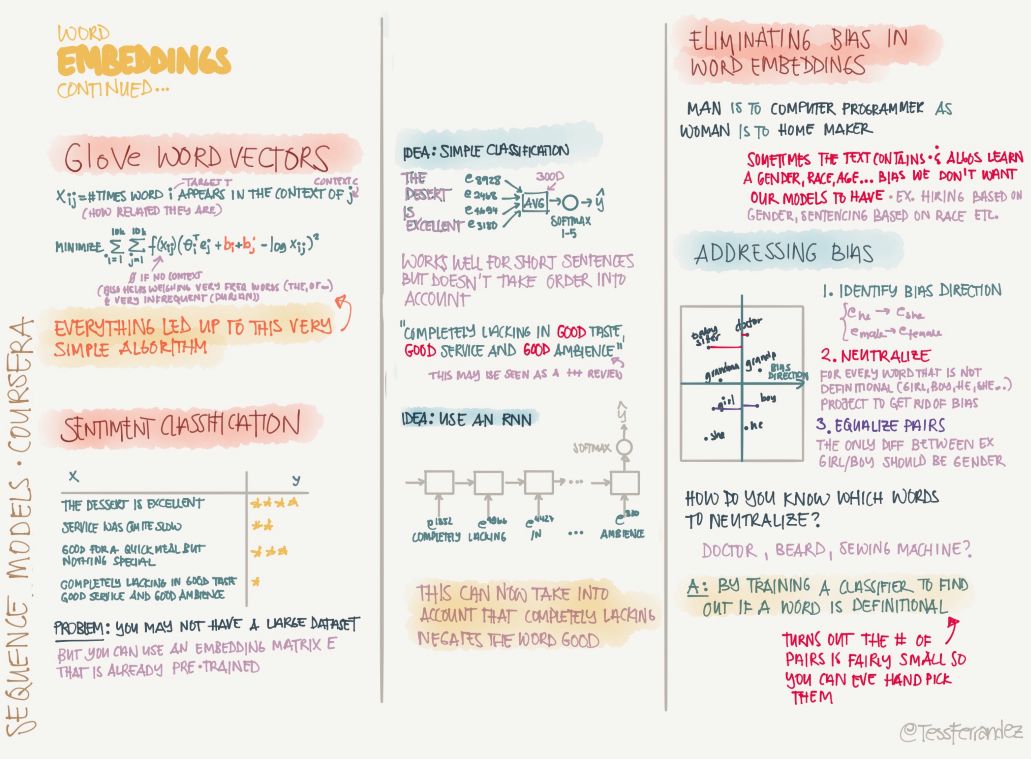 WORD
EMBEDDINGS
CONTINUED...
GloVe WORD VECTORS
TARGET T
CONTEXT C
Xij = # TIMES WORD i APPEARS IN THE CONTEXT OF j
(HOW RELATED THEY ARE)
MINIMIZE 10k Σ i=1 10k Σ j=1 f(Xij)(θiᵀej + bi + bj' - log Xij)²
IF NO CONTEXT
(ALSO HELPS WEIGHING VERY FREQ WORDS (THE, OF...)
& VERY INFREQUENT (DURIAN))
EVERYTHING LED UP TO THIS VERY
SIMPLE ALGORITHM
SENTIMENT CLASSIFICATION
X Y
THE DESSERT IS EXCELLENT ★★★★
SERVICE WAS QUITE SLOW ★★
GOOD FOR A QUICK MEAL BUT
NOTHING SPECIAL ★★★
COMPLETELY LACKING IN GOOD TASTE
GOOD SERVICE AND GOOD AMBIENCE ★
PROBLEM: YOU MAY NOT HAVE A LARGE DATASET
BUT YOU CAN USE AN EMBEDDING MATRIX E
THAT IS ALREADY PRE-TRAINED
SEQUENCE MODELS · COURSERA
IDEA: SIMPLE CLASSIFICATION
300D
THE e8928
DESERT e2468
IS e4694
EXCELLENT e3180
AVG
ŷ
SOFTMAX
1-5
WORKS WELL FOR SHORT SENTENCES
BUT DOESN'T TAKE ORDER INTO
ACCOUNT
"COMPLETELY LACKING IN GOOD TASTE,
GOOD SERVICE AND GOOD AMBIENCE"
THIS MAY BE SEEN AS A +++ REVIEW
IDEA: USE AN RNN
ŷ
SOFTMAX
...
e1852 e4966 e4427 e330
COMPLETELY LACKING IN ... AMBIENCE
THIS CAN NOW TAKE INTO
ACCOUNT THAT COMPLETELY LACKING
NEGATES THE WORD GOOD
ELIMINATING BIAS IN
WORD EMBEDDINGS
MAN IS TO COMPUTER PROGRAMMER AS
WOMAN IS TO HOME MAKER
SOMETIMES THE TEXT CONTAINS & ALGOS LEARN
A GENDER, RACE, AGE... BIAS WE DON'T WANT
OUR MODELS TO HAVE · EX. HIRING BASED ON
GENDER, SENTENCING BASED ON RACE ETC.
ADDRESSING BIAS
baby
sitter
doctor
grandma
grandp
BIAS
DIRECTION
girl
boy
she
he
1. IDENTIFY BIAS DIRECTION
ehe → eshe
emale → efemale
2. NEUTRALIZE
FOR EVERY WORD THAT IS NOT
DEFINITIONAL (GIRL, BOY, HE, SHE...)
PROJECT TO GET RID OF BIAS
3. EQUALIZE PAIRS
THE ONLY DIFF BETWEEN EX
GIRL/BOY SHOULD BE GENDER
HOW DO YOU KNOW WHICH WORDS
TO NEUTRALIZE?
DOCTOR, BEARD, SEWING MACHINE?
A: BY TRAINING A CLASSIFIER TO FIND
OUT IF A WORD IS DEFINITIONAL
TURNS OUT THE # OF
PAIRS IS FAIRLY SMALL SO
YOU CAN EVE HAND PICK
THEM
@TessFerrandez